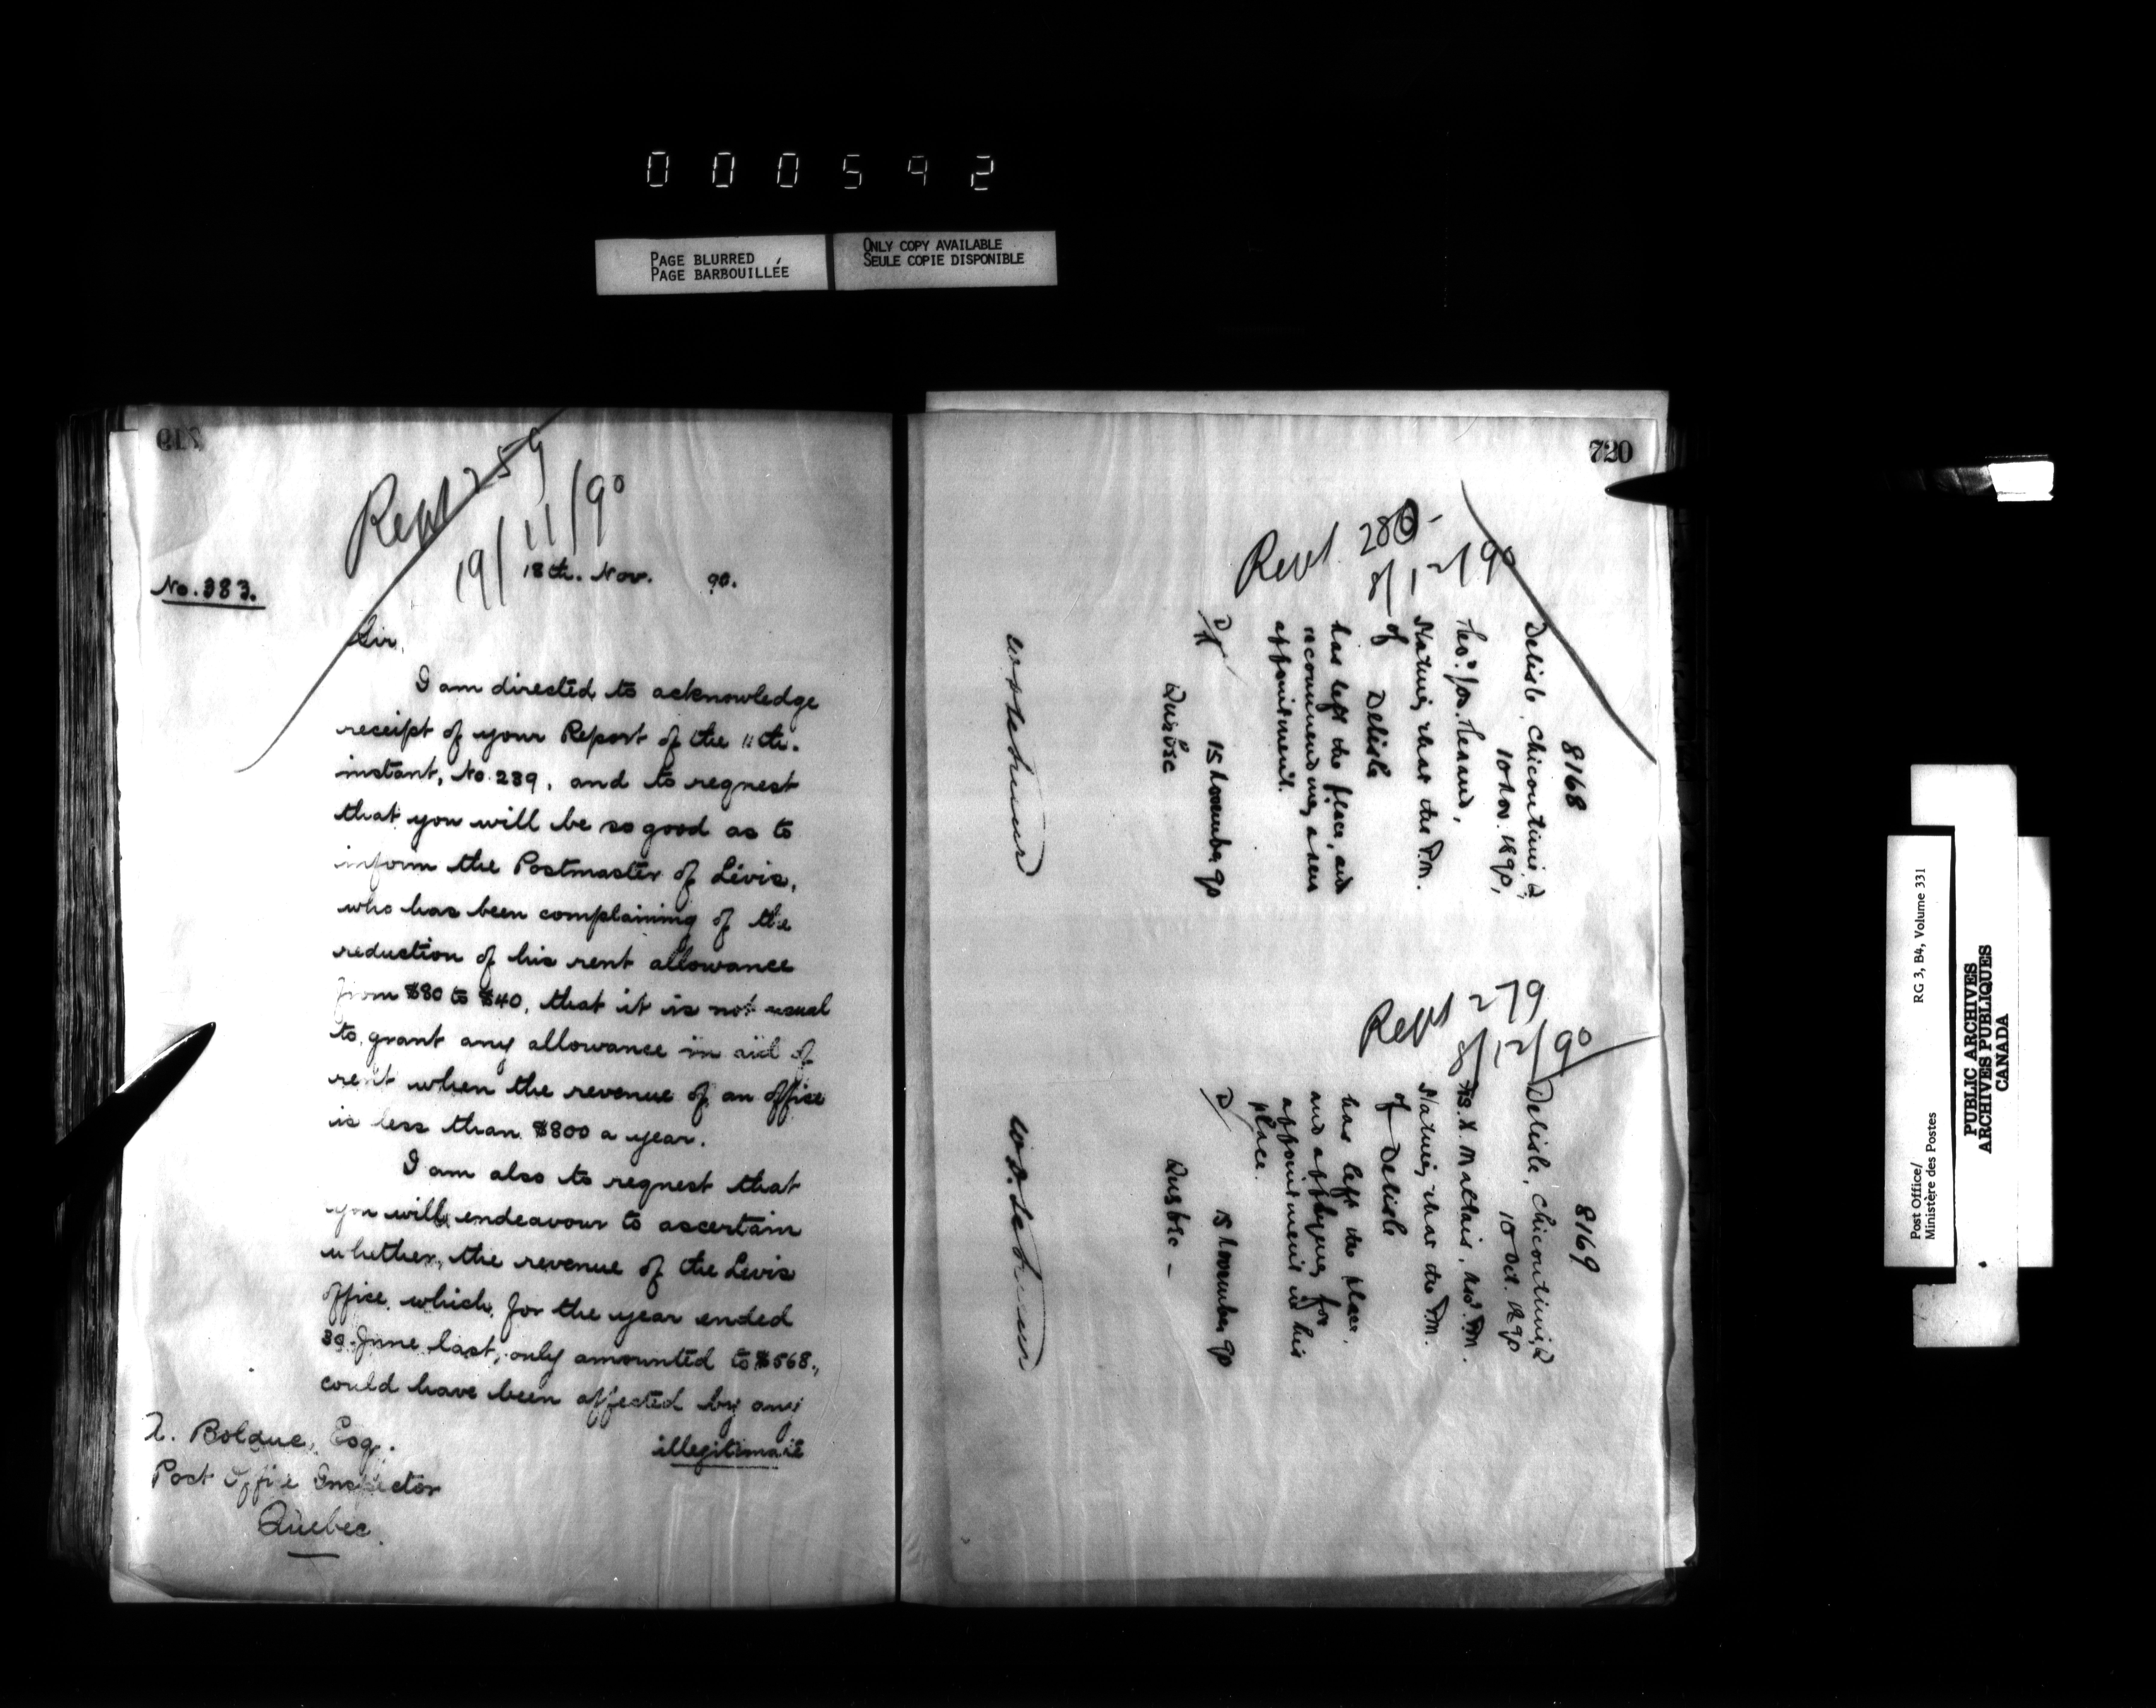 000592
PAGE BLURRED
PAGE BARBOUILLÉE
ONLY COPY AVAILABLE
SEULE COPIE DISPONIBLE
719
Rept 259
19/11/90
18th. Nov. 90.
No. 383.
Sir,
I am directed to acknowledge
receipt of your Report of the 11th.
instant, No. 239, and to request
that you will be so good as to
inform the Postmaster of Lévis,
who has been complaining of the
reduction of his rent allowance
from $80 to $40, that it is not usual
to grant any allowance in aid of
rent when the revenue of an office
is less than $800 a year.
I am also to request that
you will endeavour to ascertain
whether the revenue of the Levis
office, which, for the year ended
30 June last, only amounted to $568.,
could have been affected by any
illegitimate
A. Bolduc, Esq.
Post Office Inspector
Quebec.
720
Rept. 280
8/12/90
8168
Delisle, Chicoutimi, Q
10 Nov. 1890,
stating that the P.M.
of Delisle
has left the place, and
recommending a new
appointment.
D
15 November 90
Quebec
Rept 279
8/12/90
8169
Delisle, Chicoutimi, Q
10 Oct. 1890
stating that the P.M.
of Delisle
has left the place,
and applying for
appointment in his
place.
D
15 November 90
Quebec
Post Office/
Ministère des Postes
RG 3, B4, Volume 331
PUBLIC ARCHIVES
ARCHIVES PUBLIQUES
CANADA